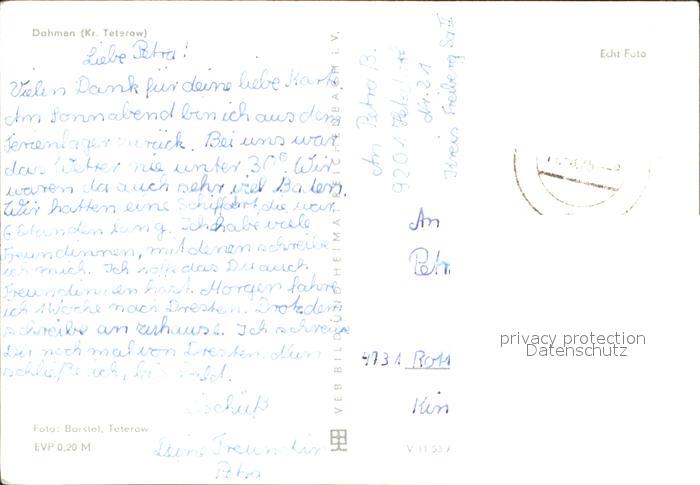 Dahmen (Kr. Teterow)
Liebe Petra!
Vielen Dank für deine liebe Karte.
Am Sonnabend bin ich aus dem
Ferienlager zurück. Bei uns war
das Wetter nie unter 30° Wir
waren da auch sehr viel Baden.
Wir hatten eine Schiffart, die war
6 Stunden lang. Ich habe viele
Freundinnen, mit denen schreibe
ich mich. Ich hoffe das Du auch
Freundinnen hast. Morgen fahre
ich 1 Woche nach Dresten. Drotzdem
schreibe an zuhause. Ich schreibe
Dir noch mal von Dresten. Nun
schließe ich, bis bald.
Tschüß
Deine Freundin
Petra
Foto: Barstel, Teterow
EVP 0,20 M
VEB BILD UND HEIMAT REICHENBACH i. V.
V 11 53
An Petra B.
9201
Nr. 21
Kreis Freiberg
Echt Foto
An
Petr
4731 Rott
Kin
privacy protection
Datenschutz